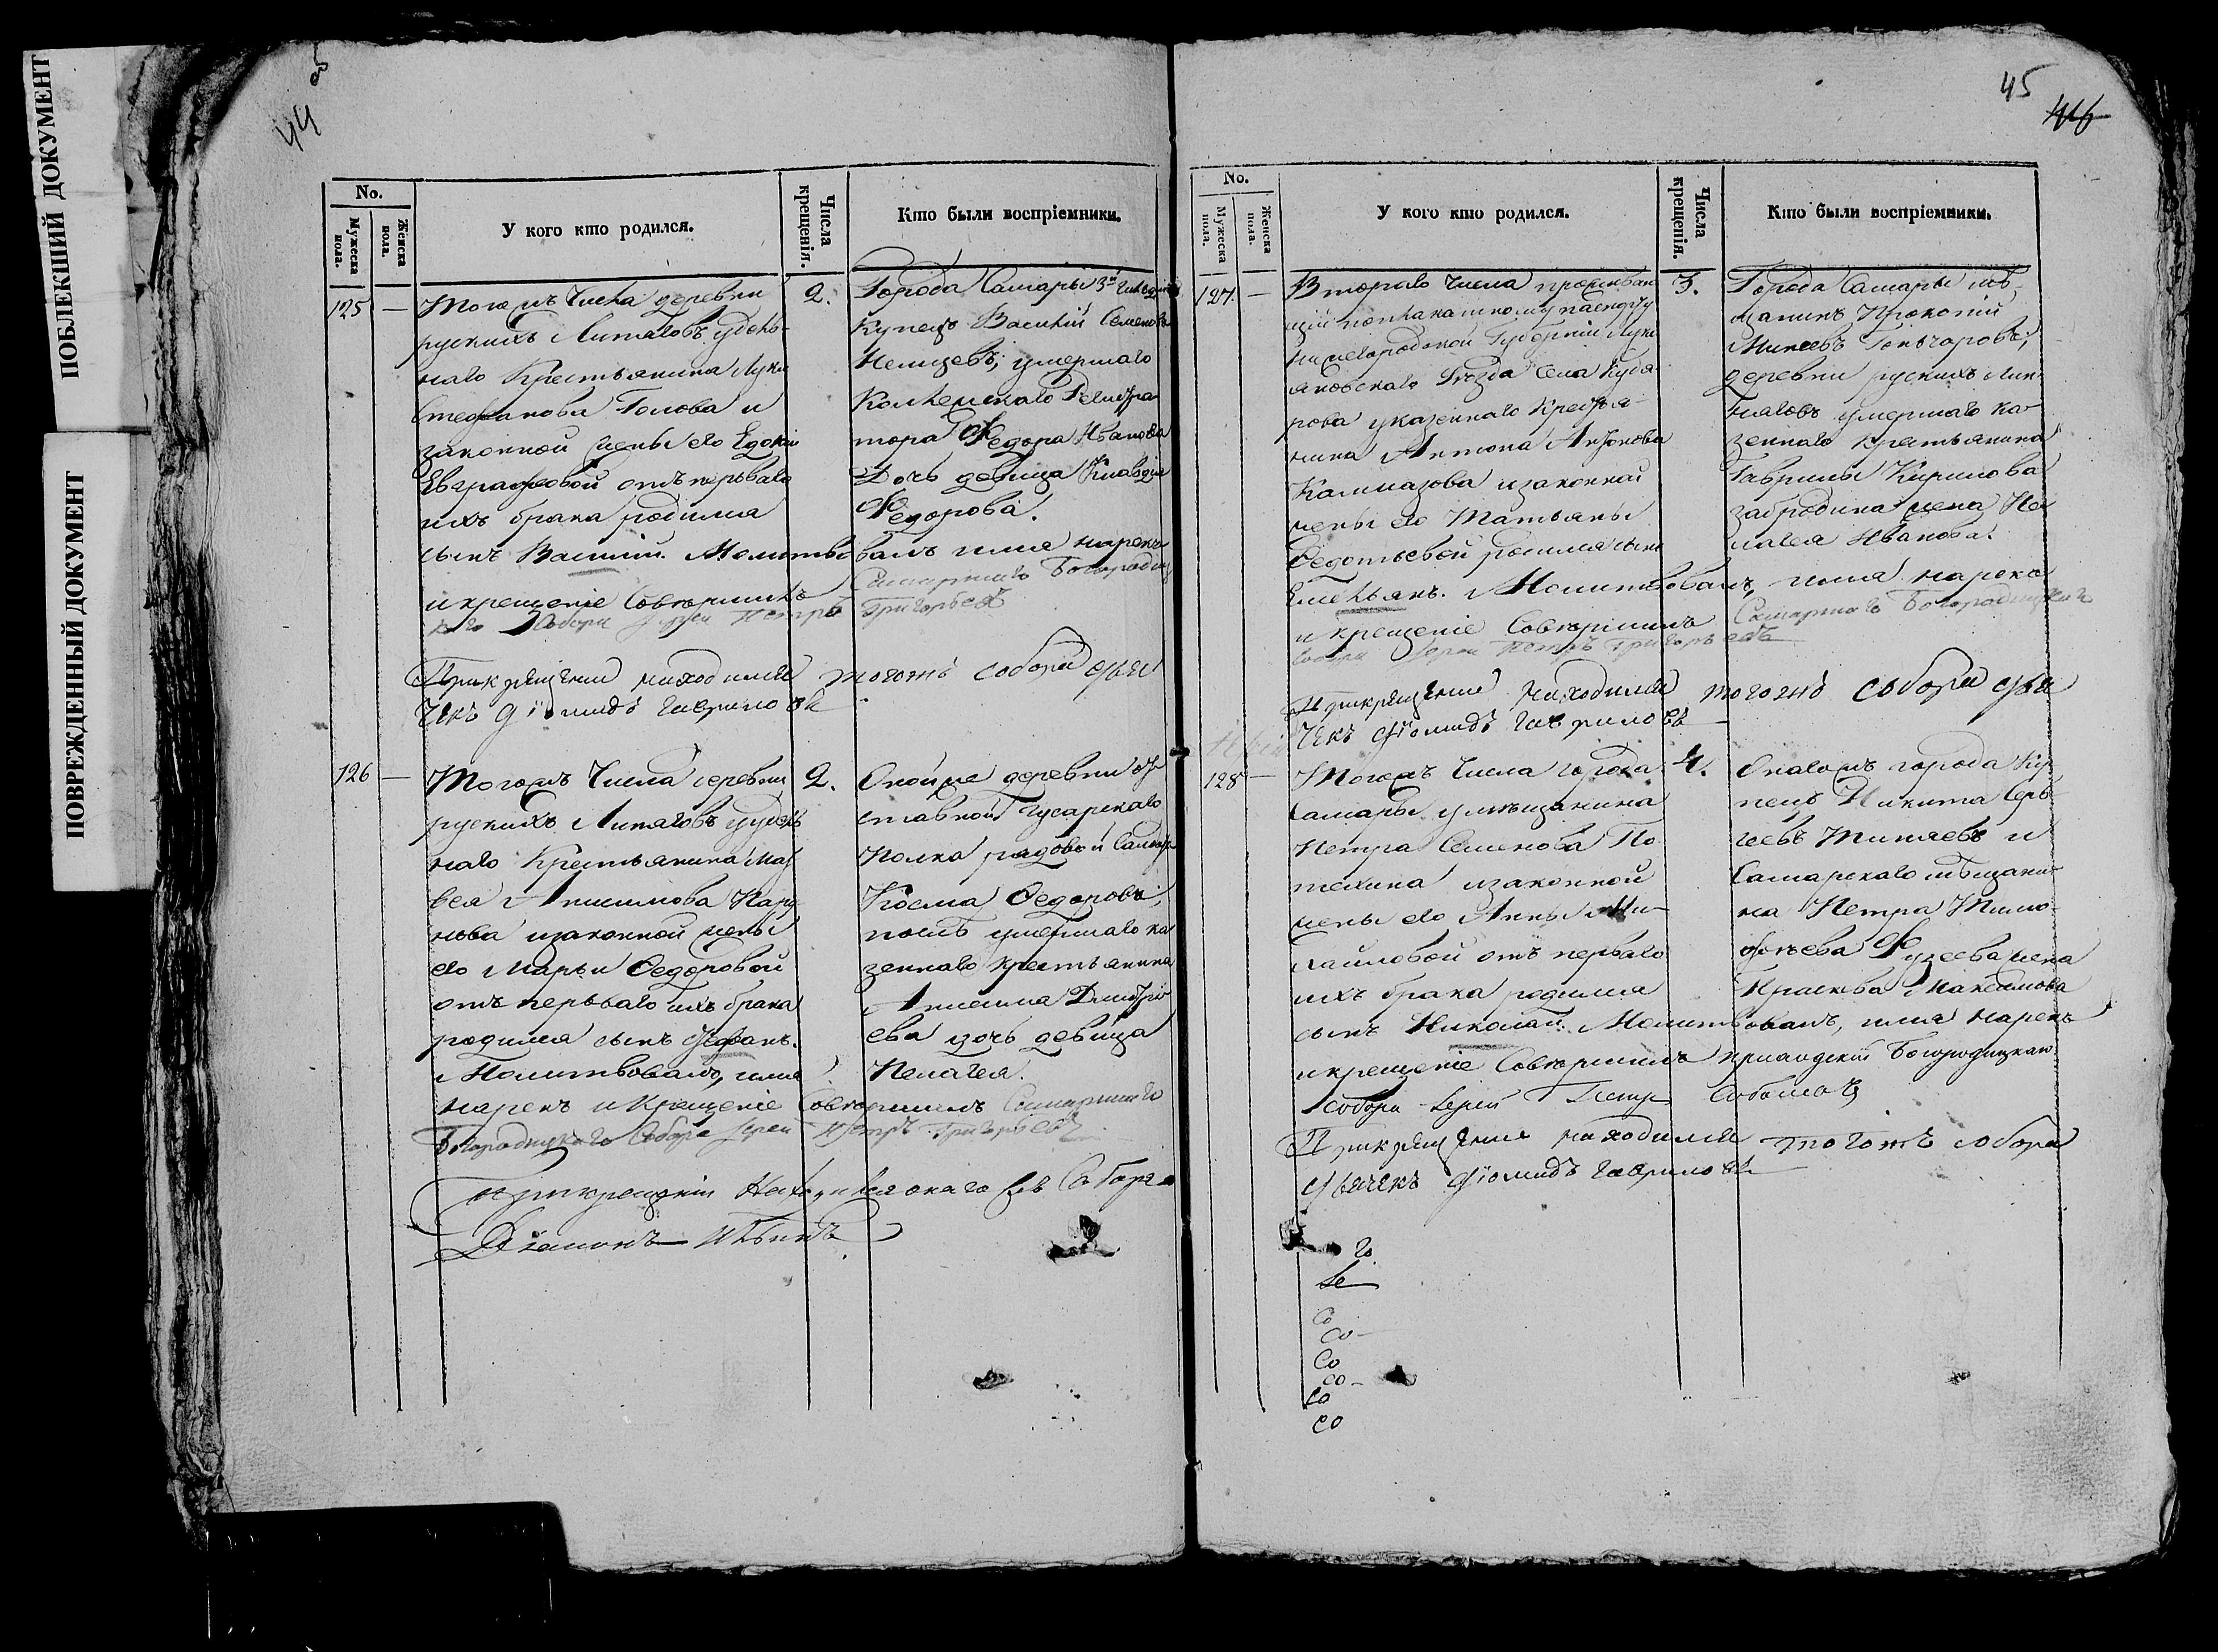 ПОБЛЕКШИЙ ДОКУМЕНТ
ПОВРЕЖДЕННЫЙ ДОКУМЕНТ
44 об
No.
Мужеска пола.
Женска пола.
У кого кто родился.
Числа крещенія.
Кто были воспріемники.
125 —
Тогожъ Числа деревни
рускихъ Липяговъ удель-
наго Крестьянина Луки
Стефанова Голова и
законной жены его Едокіи
Евграфовой отъ перваго
ихъ брака родился
сынъ Василій. Молитвовалъ имя нарекъ
и крещеніе Совершилъ Самарскаго Богородиц
каго Собора Іерей Петръ Григорьевъ
2.
Города Самары 3й Гильдіи
Купецъ Василій Семеновъ
Немцевъ; умершаго
Колежскаго Регистра-
тора Федора Иванова
Дочь девица Клавдія
Федорова.
При крещении находился тогожъ собора дья
чекъ Діомидъ Гавриловъ
126 —
Тогожъ Числа деревни
рускихъ Липяговъ удель
наго Крестьянина Мат
вея Анисимова
нова и законной жены
его Марьи Федоровой
отъ перваго ихъ брака
родился сынъ Стефанъ.
Молитвовалъ, имя
нарекъ и Крещеніе Совершилъ Самарскаго
Богородицкаго Собора Іерей Петръ Григорьевъ
2.
Оной же деревни от
ставной Гусарскаго
Полка рядовой
Козма Федоровъ;
умершаго ка
зеннаго крестьянина
Анисима Дмитрі
ева дочь девица
Пелагея.
При крещеніи Находился онаго Собора
Діаконъ
45
46
No.
Мужеска пола.
Женска пола.
У кого кто родился.
Числа крещенія.
Кто были воспріемники.
127. —
Втораго Числа проживаю
щій по плакатному паспорту
Нижегородской Губерніи Луко
яновскаго Уезда Села Кудея
рова указеннаго Крестья-
нина Антона Антонова
Калмазова и законной
жены его Татьяны
Федотьевой родился сынъ
Емельянъ. Молитвовалъ, имя нарекъ
и крещеніе Совершилъ Самарскаго Богородицкаго
собора Іерей Петръ Григорьевъ
3.
Города Самары мѣ-
щанинъ Прокопій
Михеевъ Гончаровъ;
деревни рускихъ Лип-
яговъ умершаго ка-
зеннаго Крестьянина
Гаврилы Кирилова
Забродина жена Пе
лагея Иванова.
При крещении находился тогожъ собора дья
чекъ Діомидъ Гавриловъ
128 —
Тогожъ Числа города
Самары у мѣщанина
Петра Семенова По
техина и законной
жены его Анны Ми-
хайловой отъ перваго
ихъ брака родился
сынъ Николай. Молитвовалъ, имя нарекъ
и крещеніе Совершилъ Богородицкаго
собора Іерей Петръ Соболевъ
4.
Онагожъ города Ку-
пецъ Никита Серь-
геевъ Тиняевъ и
Самарскаго мѣщани-
на Петра Тимо-
фѣева жена
Прасковья Максимова
При крещении находился тогожъ собора
дьячекъ Діомидъ Гавриловъ
го
Се
Со
Со
Со
Со
Со
Со